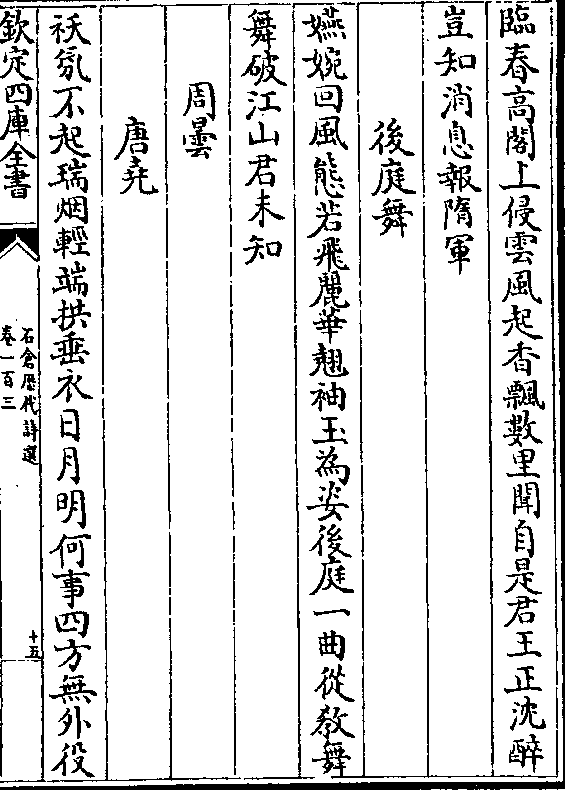 臨春高閣上侵雲風起香飄數里聞自是君王正沈醉
豈知消息報隋軍
後庭舞
嬿婉回風態若飛麗華翹袖玉為姿後庭一曲從教舞
舞破江山君未知
周曇
唐堯
祅氛不起瑞烟輕端拱垂衣日月明何事四方無外役
欽定四庫全書
石倉歷代詩選
卷一百三
十五